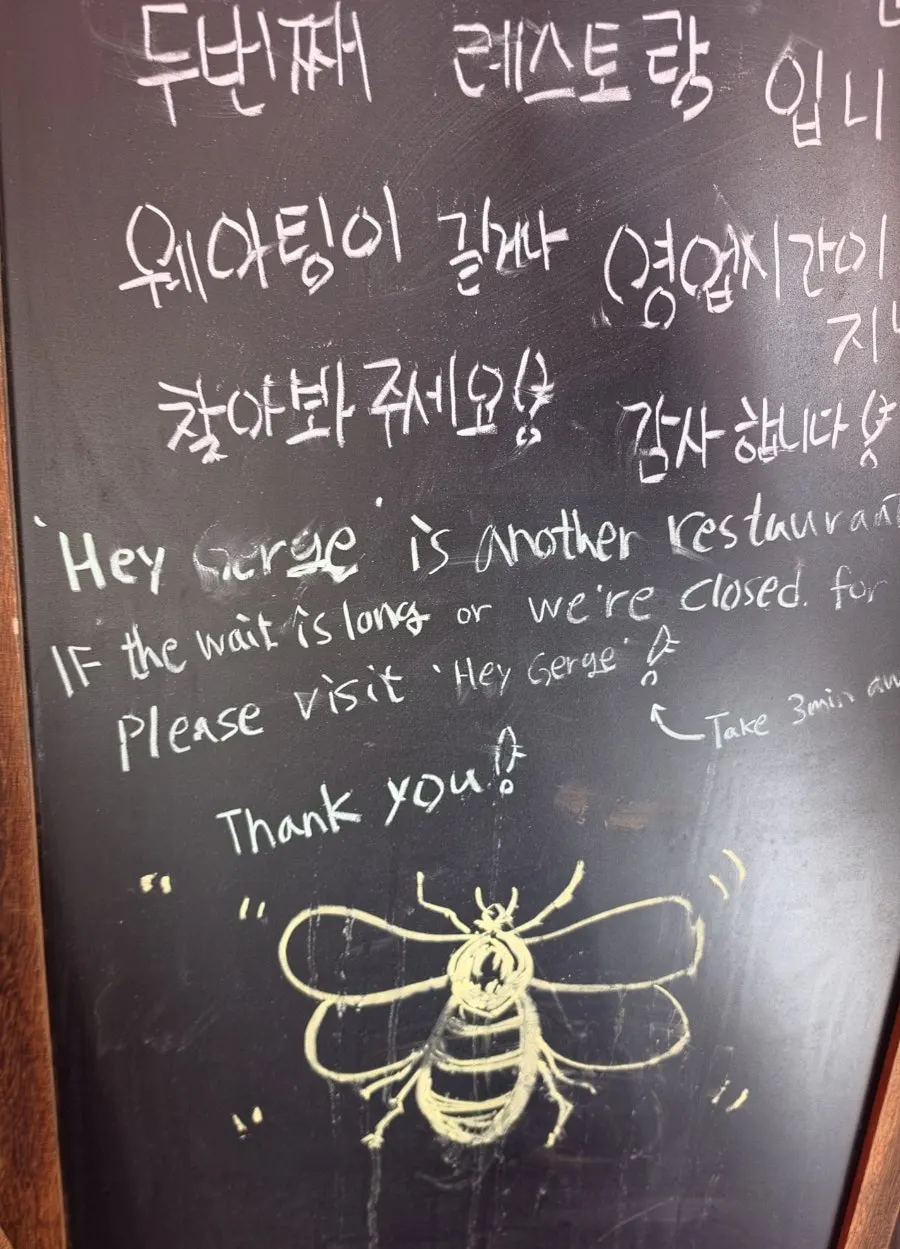 두번째 레스토랑 입니
웨이팅이 길거나 영업시간이
지
찾아봐주세요! 감사합니다!
'Hey Gerge' is another restaurant
IF the wait is long or we're closed. for
Please visit 'Hey Gerge'!
Take 3min
Thank you!